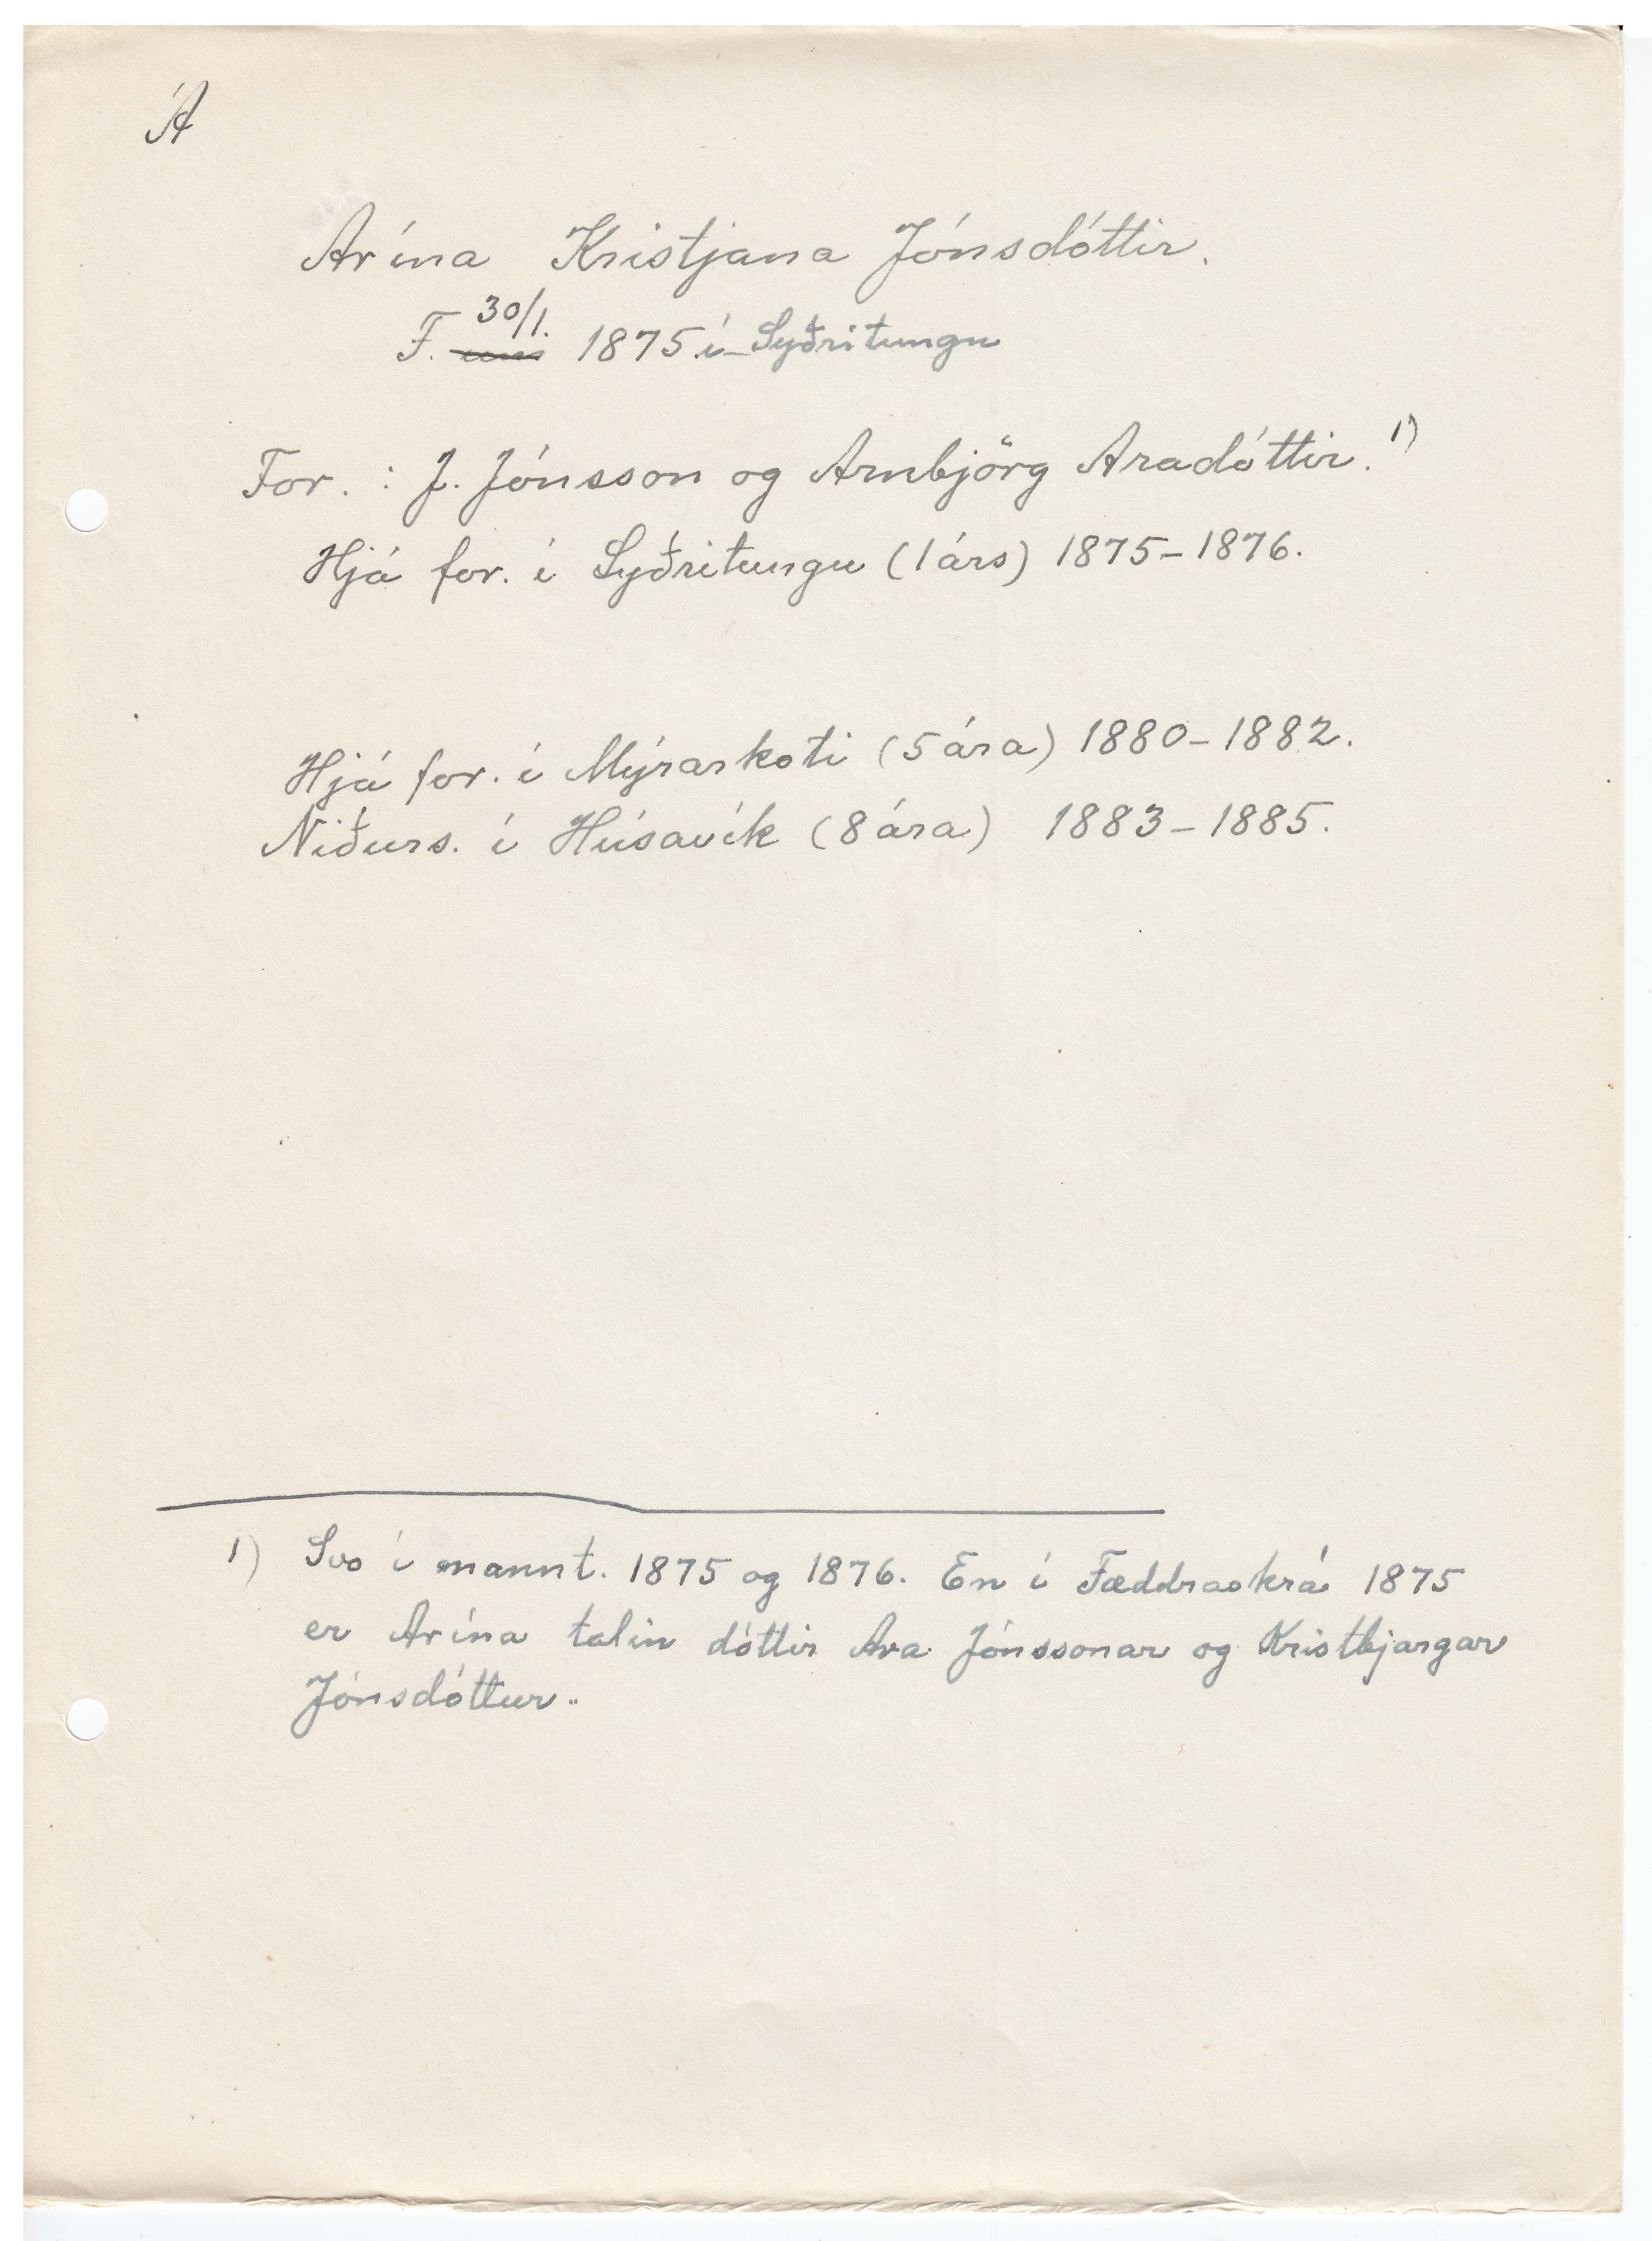 Á
Arína Kristjana Jónsdóttir.
F. 30/1. um 1875 í Syðritungu
For. : J. Jónsson og Arnbjörg Aradóttir. 1)
Hjá for. í Syðritungu (1 árs) 1875-1876.
Hjá for. í Mýrarkoti (5 ára) 1880-1882.
Niðurs. í Húsavík (8 ára) 1883-1885.
1) Svo í mannt. 1875 og 1876. En í Fæddraskrá 1875
er Arína talin dóttir Ara Jónssonar og Kristbjargar
Jónsdóttur.